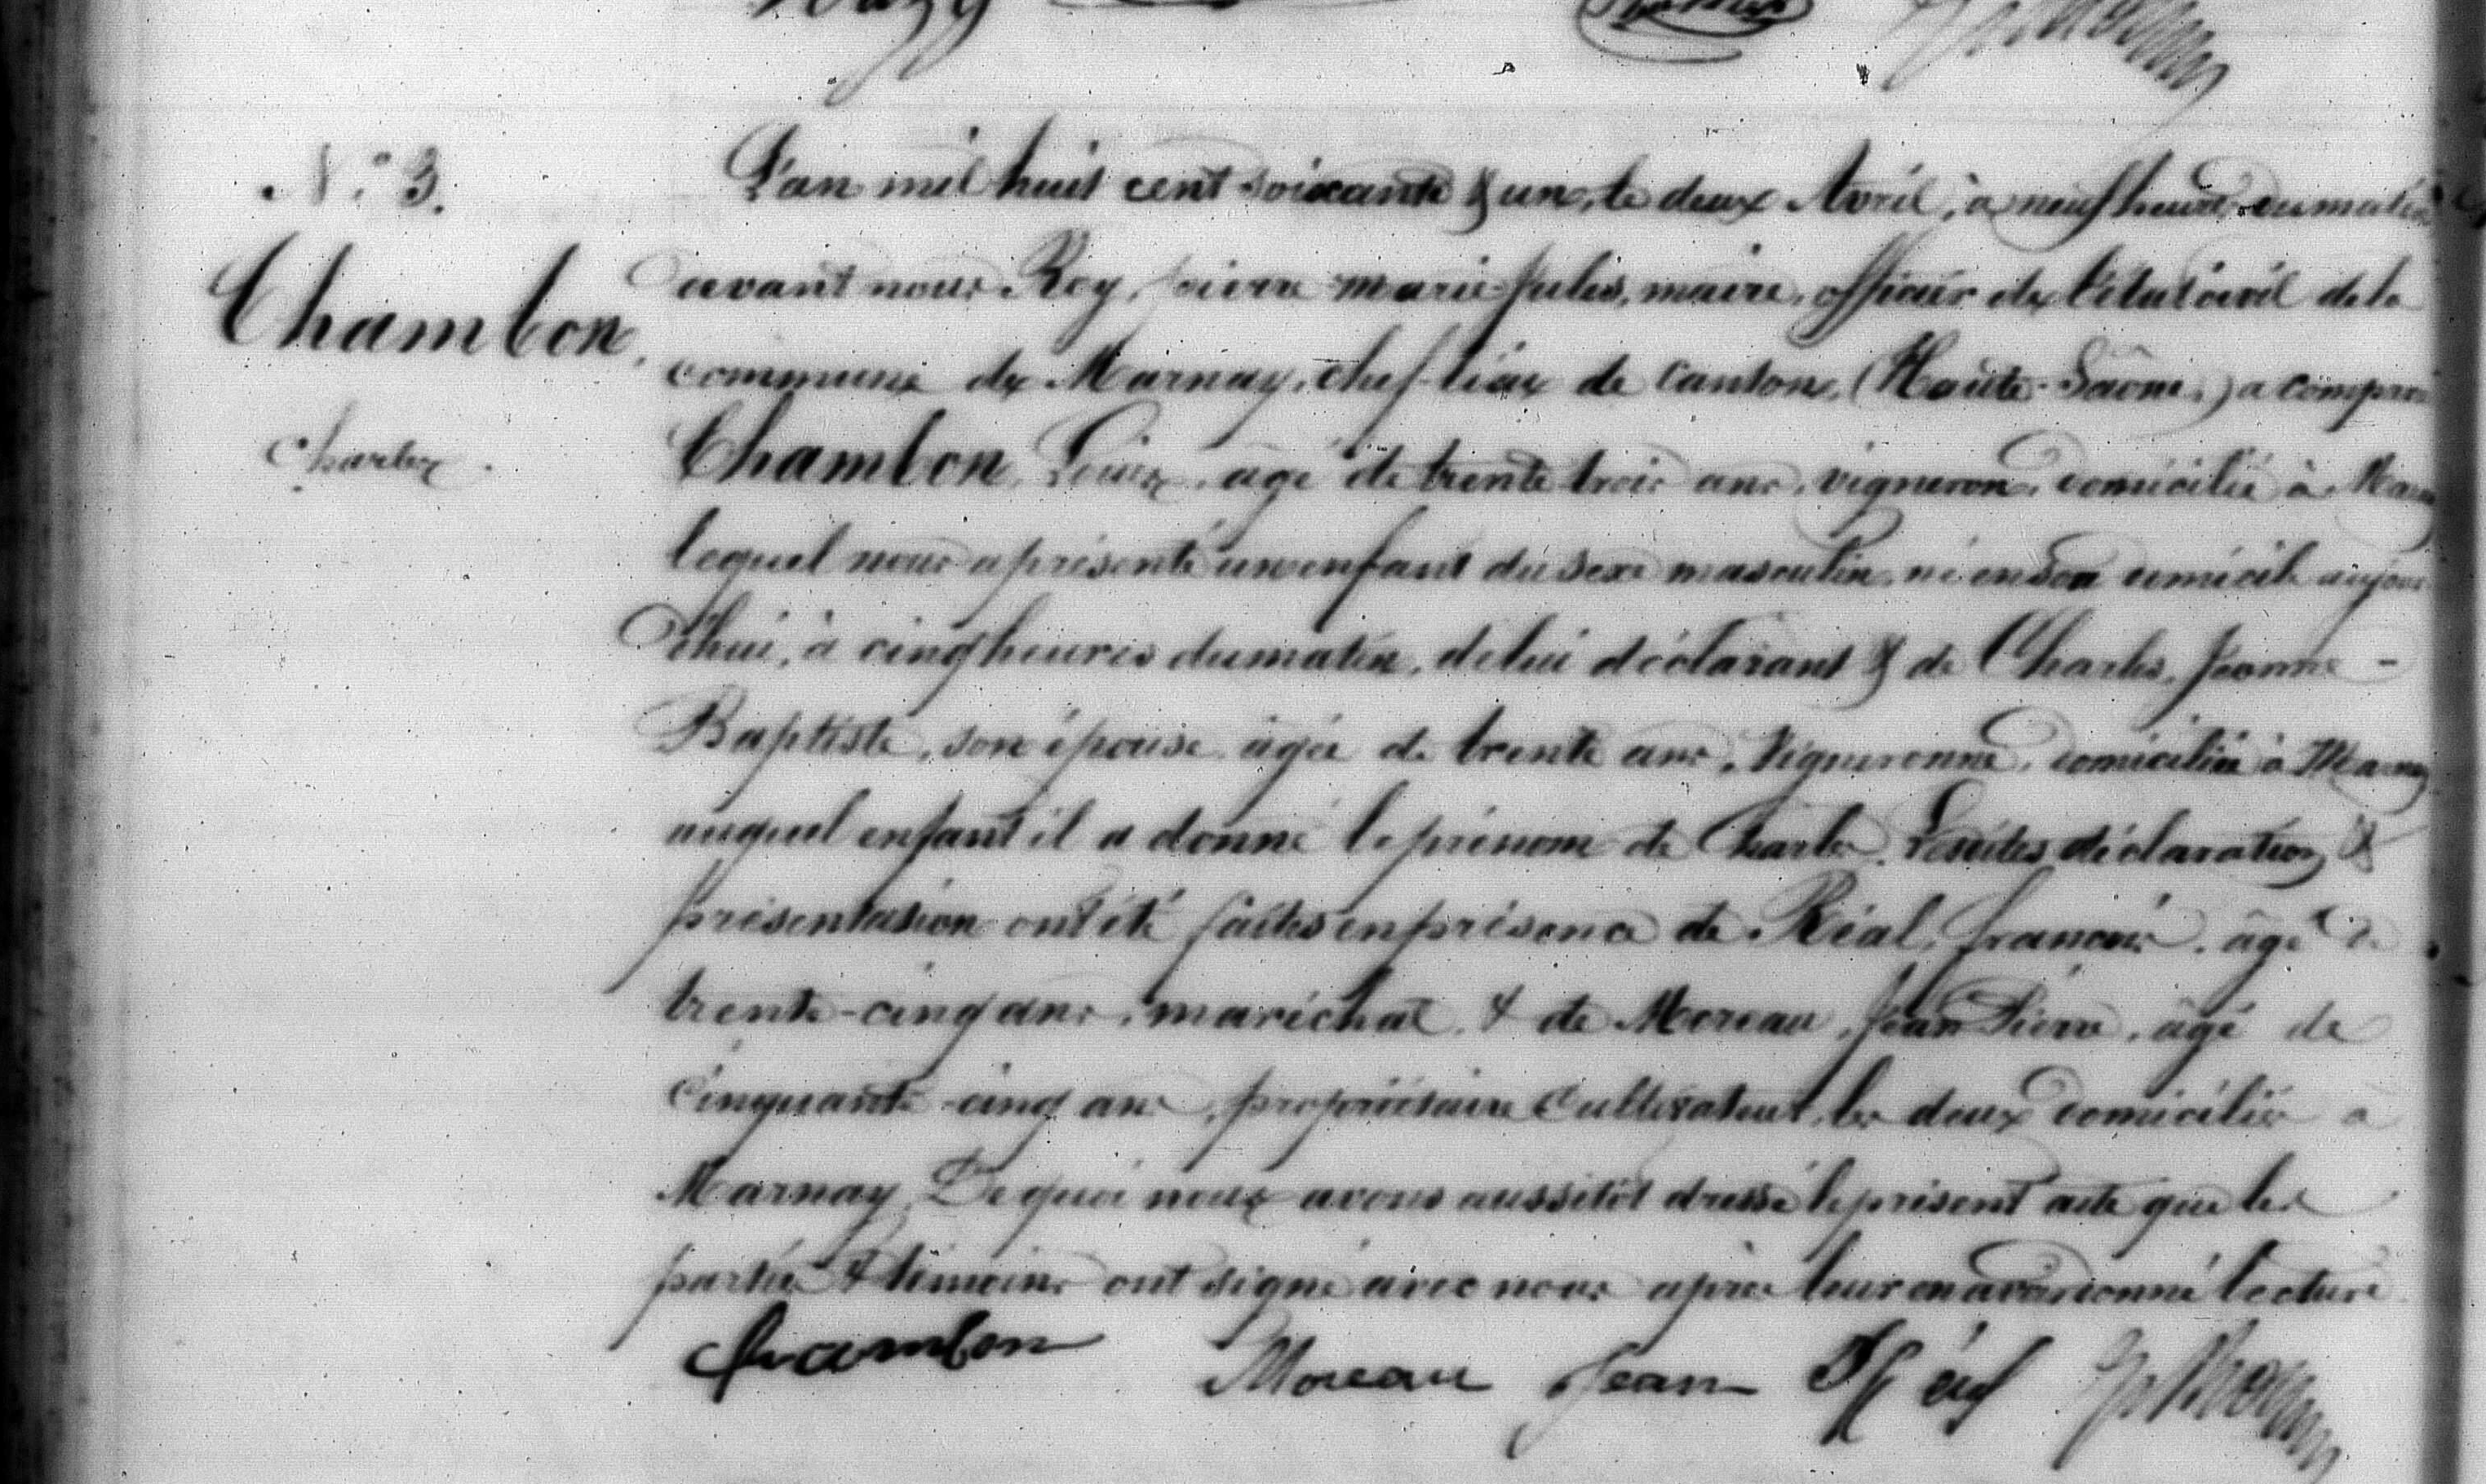 N.° 3.
Chambon,
Charles.
L'an mil huit cent soixante & un, le deux Avril, à neuf heures du matin
devant nous Roy, pierre marie Jules, maire, officier de l'état civil de la
commune de Marnay, chef-lieu de canton, (Haute-Saône,) a comparu
Chambon, Louis, âgé de trente trois ans, vigneron, domicilié à Marnay
lequel nous a présenté un enfant du sexe masculin, né en son domicile aujour
d'hui, à cinq heures du matin, de lui déclarant & de Charles, Jeanne-
Baptiste, son épouse, âgée de trente ans, Vigneronne, domiciliée à Marnay
auquel enfant il a donné le prénom de Charles. Lesdites déclaration &
présentation ont été faites en présence de Réal, françois, âgé de
trente-cinq ans, maréchal, & de Moreau, Jean Pierre, âgé de
cinquante-cinq ans, propriétaire Cultivateur, les deux domiciliés à
Marnay. De quoi nous avons aussitôt dressé le présent acte que les
parties & témoins ont signé avec nous après leur en avoir donné lecture
Chambon Moreau Jean